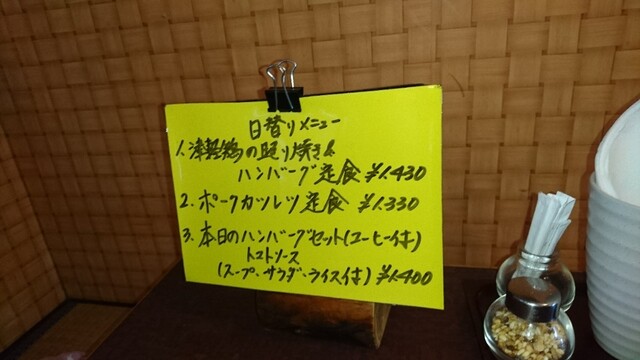 日替りメニュー
1. 津軽鶏の照り焼き&
ハンバーグ定食 ¥1.430
2. ポークカツレツ定食 ¥1.330
3. 本日のハンバーグセット(コーヒー付)
トマトソース
(スープ、サラダ、ライス付) ¥1.400